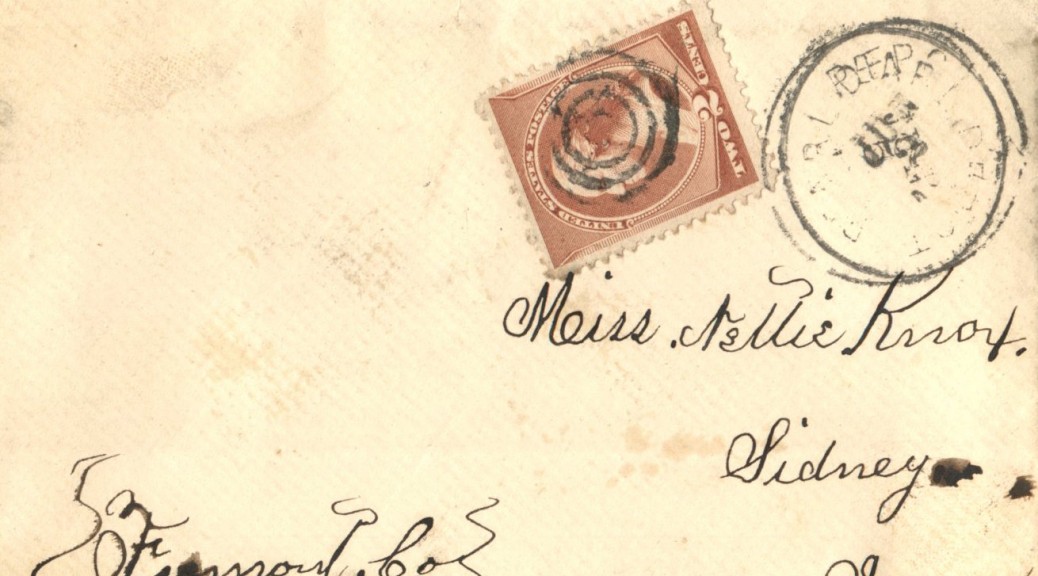 UNITED STATES POSTAGE
TWO 2 CENTS
Miss. Nellie Knox.
Sidney
Fremont, Co